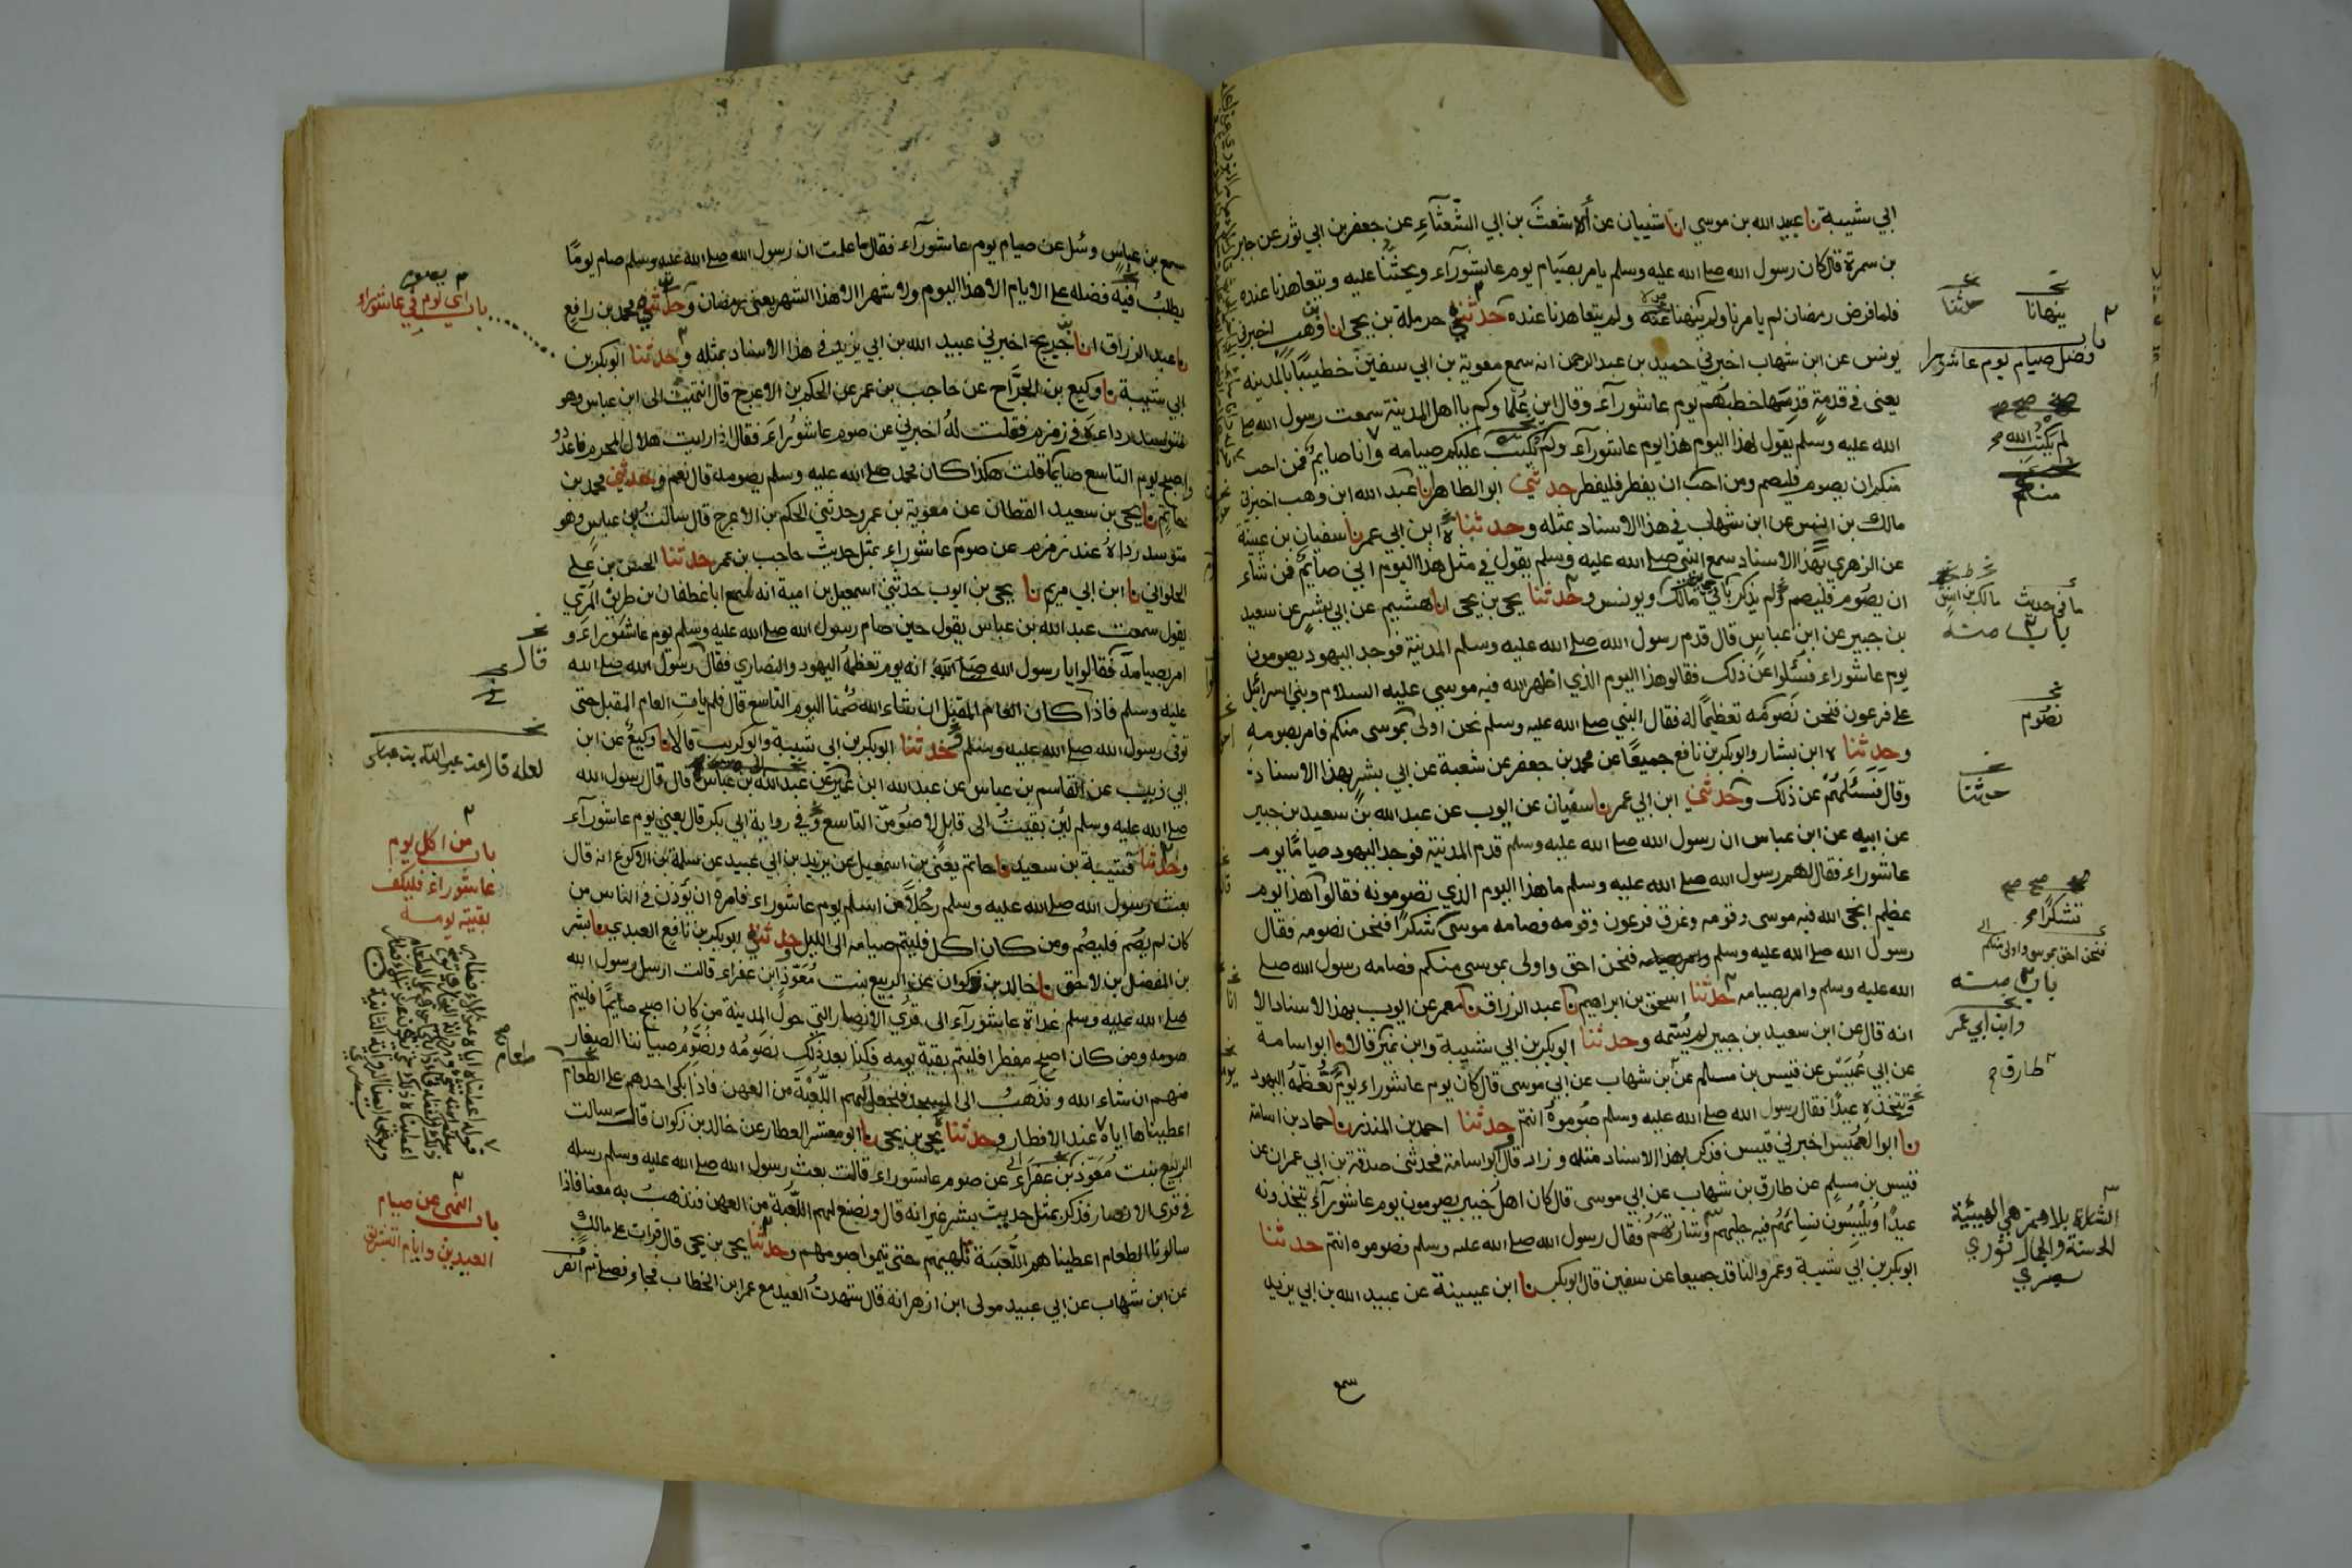 ابي شيبة نا عبيد الله بن موسي انا شيبان عن ألاشعثَ بن ابي الشّعْثآءِ عن جعفر بن ابي ثور عن جابر
بن سمرة قال كان رسول الله صلے الله عليه وسلم يامر بصيام يوم عاشورآء ويحثّنا عليه ويتعاهدنا عنده
فلما فرض رمضان لم يامرنا ولم ينهنا عنه ولم يتعاهدنا عنده حدثني حرملة بن يحيى انا وهب اخبرني
يونس عن ابن شهاب اخبرني حميد بن عبد الرحمن انه سمع معوية بن ابي سفين خطيبًا بالمدينه
يعنى في قدمةٍ قدِمَها خطبَهم يوم عاشورآء وقال اين عُلماوكم يا اهل المدينة سمعت رسول الله صلے
الله عليه وسلم يقول لهذا اليوم هذا يوم عاشورآء ولم يُكتب عليكم صيامه وانا صايم فمن احب
منكم ان يصوم فليصم ومن احب ان يفطر فليفطر حدثني ابو الطاهر نا عبد الله ابن وهب اخبرني
مالك بن انس عن ابن شهاب في هذا الاسناد بمثله وحدثنا ه ابن ابي عمر نا سفيان بن عيينة
عن الزهري بهذا الاسناد سمع النبي صلے الله عليه وسلم يقول في مثل هذا اليوم اني صايم فمن شاء
ان يصوم فليصم ولم يذكر باقي مالك ويونس وحدثنا يحيى بن يحيى انا هشيم عن ابي بشر عن سعيد
بن جبير عن ابن عباس قال قدم رسول الله صلے الله عليه وسلم المدينة فوجد اليهود يصومون
يوم عاشوراء فسُئلوا عن ذلك فقالو هذا اليوم الذي اظهر الله فيه موسي عليه السلام وبني اسرائيل
على فرعون فنحن نصومه تعظيمًا له فقال النبي صلے الله عليه وسلم نحن اولى بموسى منكم فامر بصومه
وحدثنا ه ابن بشار وابو بكر بن نافع جميعًا عن محمد بن جعفر عن شعبة عن ابي بشر بهذا الاسناد
وقال فسئلهُم عن ذلك وحدثني ابن ابي عمر نا سفيان عن ايوب عن عبد الله بن سعيد بن جبير
عن ابيه عن ابن عباس ان رسول الله صلے الله عليه وسلم قدم المدينة فوجد اليهود صيامًا يوم
عاشوراء فقال لهم رسول الله صلے الله عليه وسلم ما هذا اليوم الذي تصومونه فقالوا هذا يوم
عظيم انجى الله فيه موسى وقومه وغرق فرعون وقومه وصامه موسى شكرًا فنحن نصومه فقال
رسول الله صلے الله عليه وسلم فنحن احق واولى بموسى منكم فصامه رسول الله صلے
الله عليه وسلم وامر بصيامه حدثنا اسحق بن ابراهيم نا عبد الرزاق نا معمر عن ايوب بهذا الاسناد الا
انه قال عن ابن سعيد بن جبير لم يُسَمّه وحدثنا ابو بكر بن ابي شيبة وابن نمير قالا نا ابو اسامة
عن ابي عُمَيْس عن قيس بن مسلم عن بن شهاب عن ابي موسى قال كان يوم عاشوراء يومٌ تُعظّمهُ اليهود
وتتخذه عيدًا فقال رسول الله صلے الله عليه وسلم صوموهُ انتم وحدثنا احمد بن المنذر نا حماد بن اسامة
نا ابو العُمَيس اخبرني قيس فذكر بهذا الاسناد مثله وزاد قال ابو اسامة فحدثني صدقة بن ابي عمران عن
قيس بن مسلم عن طارق بن شهاب عن ابي موسى قال كان اهل خيبر يصومون يوم عاشورآء يتخذونه
عيدًا ويُلبِسُون نساءَهُم فيه حليهم وشارتهم فقال رسول الله صلے الله عليه وسلم فصوموه انتم حدثنا
ابو بكر بن ابي شيبة وعمرو الناقد جميعا عن سفين قال ابو بكر نا ابن عيينة عن عبيد الله بن ابي يزيد
سمع
ينهانا
حدثنا
باب فضل صيام يوم عاشورا
لم يكتب الله
منكم
ما في حديث مالك بن انس
باب منه
نصوم
حدثنا
تشكرًا
فنحن احق بموسى واولى منكم
باب منه
وابن ابي عمر
طارق
الشارة بلا همز هي الهيئة
الحسنة والجمال نووي
سمع بن عباس وسُئل عن صيام يوم عاشورآء فقال ما علمت ان رسول الله صلے الله عليه وسلم صام يومًا
يطلبُ فيه فضله على الايام الا هذا اليوم ولا شهرا الا هذا الشهر يعنى رمضان وحدثني محمد بن رافع
نا عبد الرزاق انا جُريج اخبرني عبيد الله بن ابي يزيد في هذا الاسناد بمثله وحدثنا ابو بكر بن
ابي شيبة نا وكيع بن الجرّاح عن حاجب بن عمر عن الحكم بن الاعرج قال انتهيت الى ابن عباس وهو
متوسد رداءَه في زمزم فقلت لهُ اخبرني عن صوم عاشورَاءَ فقال اذا رايت هلال المحرم فاعدُدْ
واصبح يوم التاسع صايمًا قلت هكذا كان محمد صلے الله عليه وسلم يصومه قال نعم وحدثني محمد بن
حاتم نا يحيى بن سعيد القطان عن معوية بن عمر وحدثني الحكم بن الاعرج قال سالت بن عباس وهو
متوسد رداهُ عند زمزم عن صوم عاشوراء بمثل حديث حاجب بن عمر حدثنا الحسن بن على
الحلواني نا ابن ابي مريم نا يحيى بن ايوب حدثني اسمعيل بن امية انه سمع ابا غطفان بن طريف المرّي
يقول سمعت عبد الله بن عباس يقول حين صام رسول الله صلے الله عليه وسلم يوم عاشوراءَ و
امر بصيامه فقالوا يا رسول الله انه يوم تعظمهُ اليهود والنصاري فقال رسول الله صلے الله
عليه وسلم فاذا كان العام المقبل ان شاء الله صُمْنا اليوم التاسع قال فلم ياتِ العام المقبل حتى
توفى رسول الله صلے الله عليه وسلم وحدثنا ابو بكر بن ابي شيبة وابو كريب قالا نا وكيعٌ عن ابن
ابي ذيب عن القاسم بن عباس عن عبد الله ابن عُمير عن عبد الله بن عباس قال قال رسول الله
صلے الله عليه وسلم لئن بقيتُ الى قابل لاصُومنّ التاسع وفي رواية ابي بكر قال يعني يوم عاشورآء
وحدثنا قتيبة بن سعيد نا حاتم يعني بن اسمعيل عن يزيد بن ابي عبيد عن سلمة بن الاكوع انه قال
بعث رسول الله صلے الله عليه وسلم رجُلًا من اسلم يوم عاشوراء فامره ان يُوَذّن في الناس من
كان لم يصُم فليصُم ومن كان اكل فليتم صيامه الى الليل وحدثني ابو بكر بن نافع العبدي نا بشر
بن المفضل بن لاحق نا خالد بن ذكوان عن الربيع بنت مُعَوّذ ابن عفراء قالت ارسل رسول الله
صلے الله عليه وسلم غداة عاشورآء الى قُرى الانصار التي حول المدينة من كان اصبح صايمًا فليتم
صومه ومن كان اصبح مفطرا فليتم بقية يومه فكنا بعد ذلك نصومُه ونُصَوّمُ صبياننا الصغار
منهم ان شاء الله ونذهبُ الى المسجد فنجعل لهم اللُعْبَة من العهن فاذا بكى احدهم على الطعام
اعطيناها اياه عند الافطار وحدثنا يحيى بن يحيى نا ابو معشر العطار عن خالد بن ذكوان قال سالت
الربيع بنت مُعَوّذ بن عَفراء عن صوم عاشوراء قالت بعث رسول الله صلے الله عليه وسلم رسله
في قرى الانصار فذكر بمثل حديث بشر غير انه قال ونصنع لهم اللُّعْبَة من العهن فنذهبُ به معنا فاذا
سالونا الطعام اعطيناهم اللُّعْبَة تُلهيهم حتى يتموا صومهم وحدثنا يحيى بن يحيى قال قرات على مالك
عن ابن شهاب عن ابي عبيد مولى ابن ازهر انه قال شهدتُ العيد مع عمر ابن الخطاب فجاء فصلى ثم انصر
باب اي يوم في عاشوراء
قال
لعله قال عن عبد الله بن عباس
باب من اكل يوم
عاشوراء فليكف
بقية يومه
طعام
باب النهي عن صيام
العيدين وايام التشريق